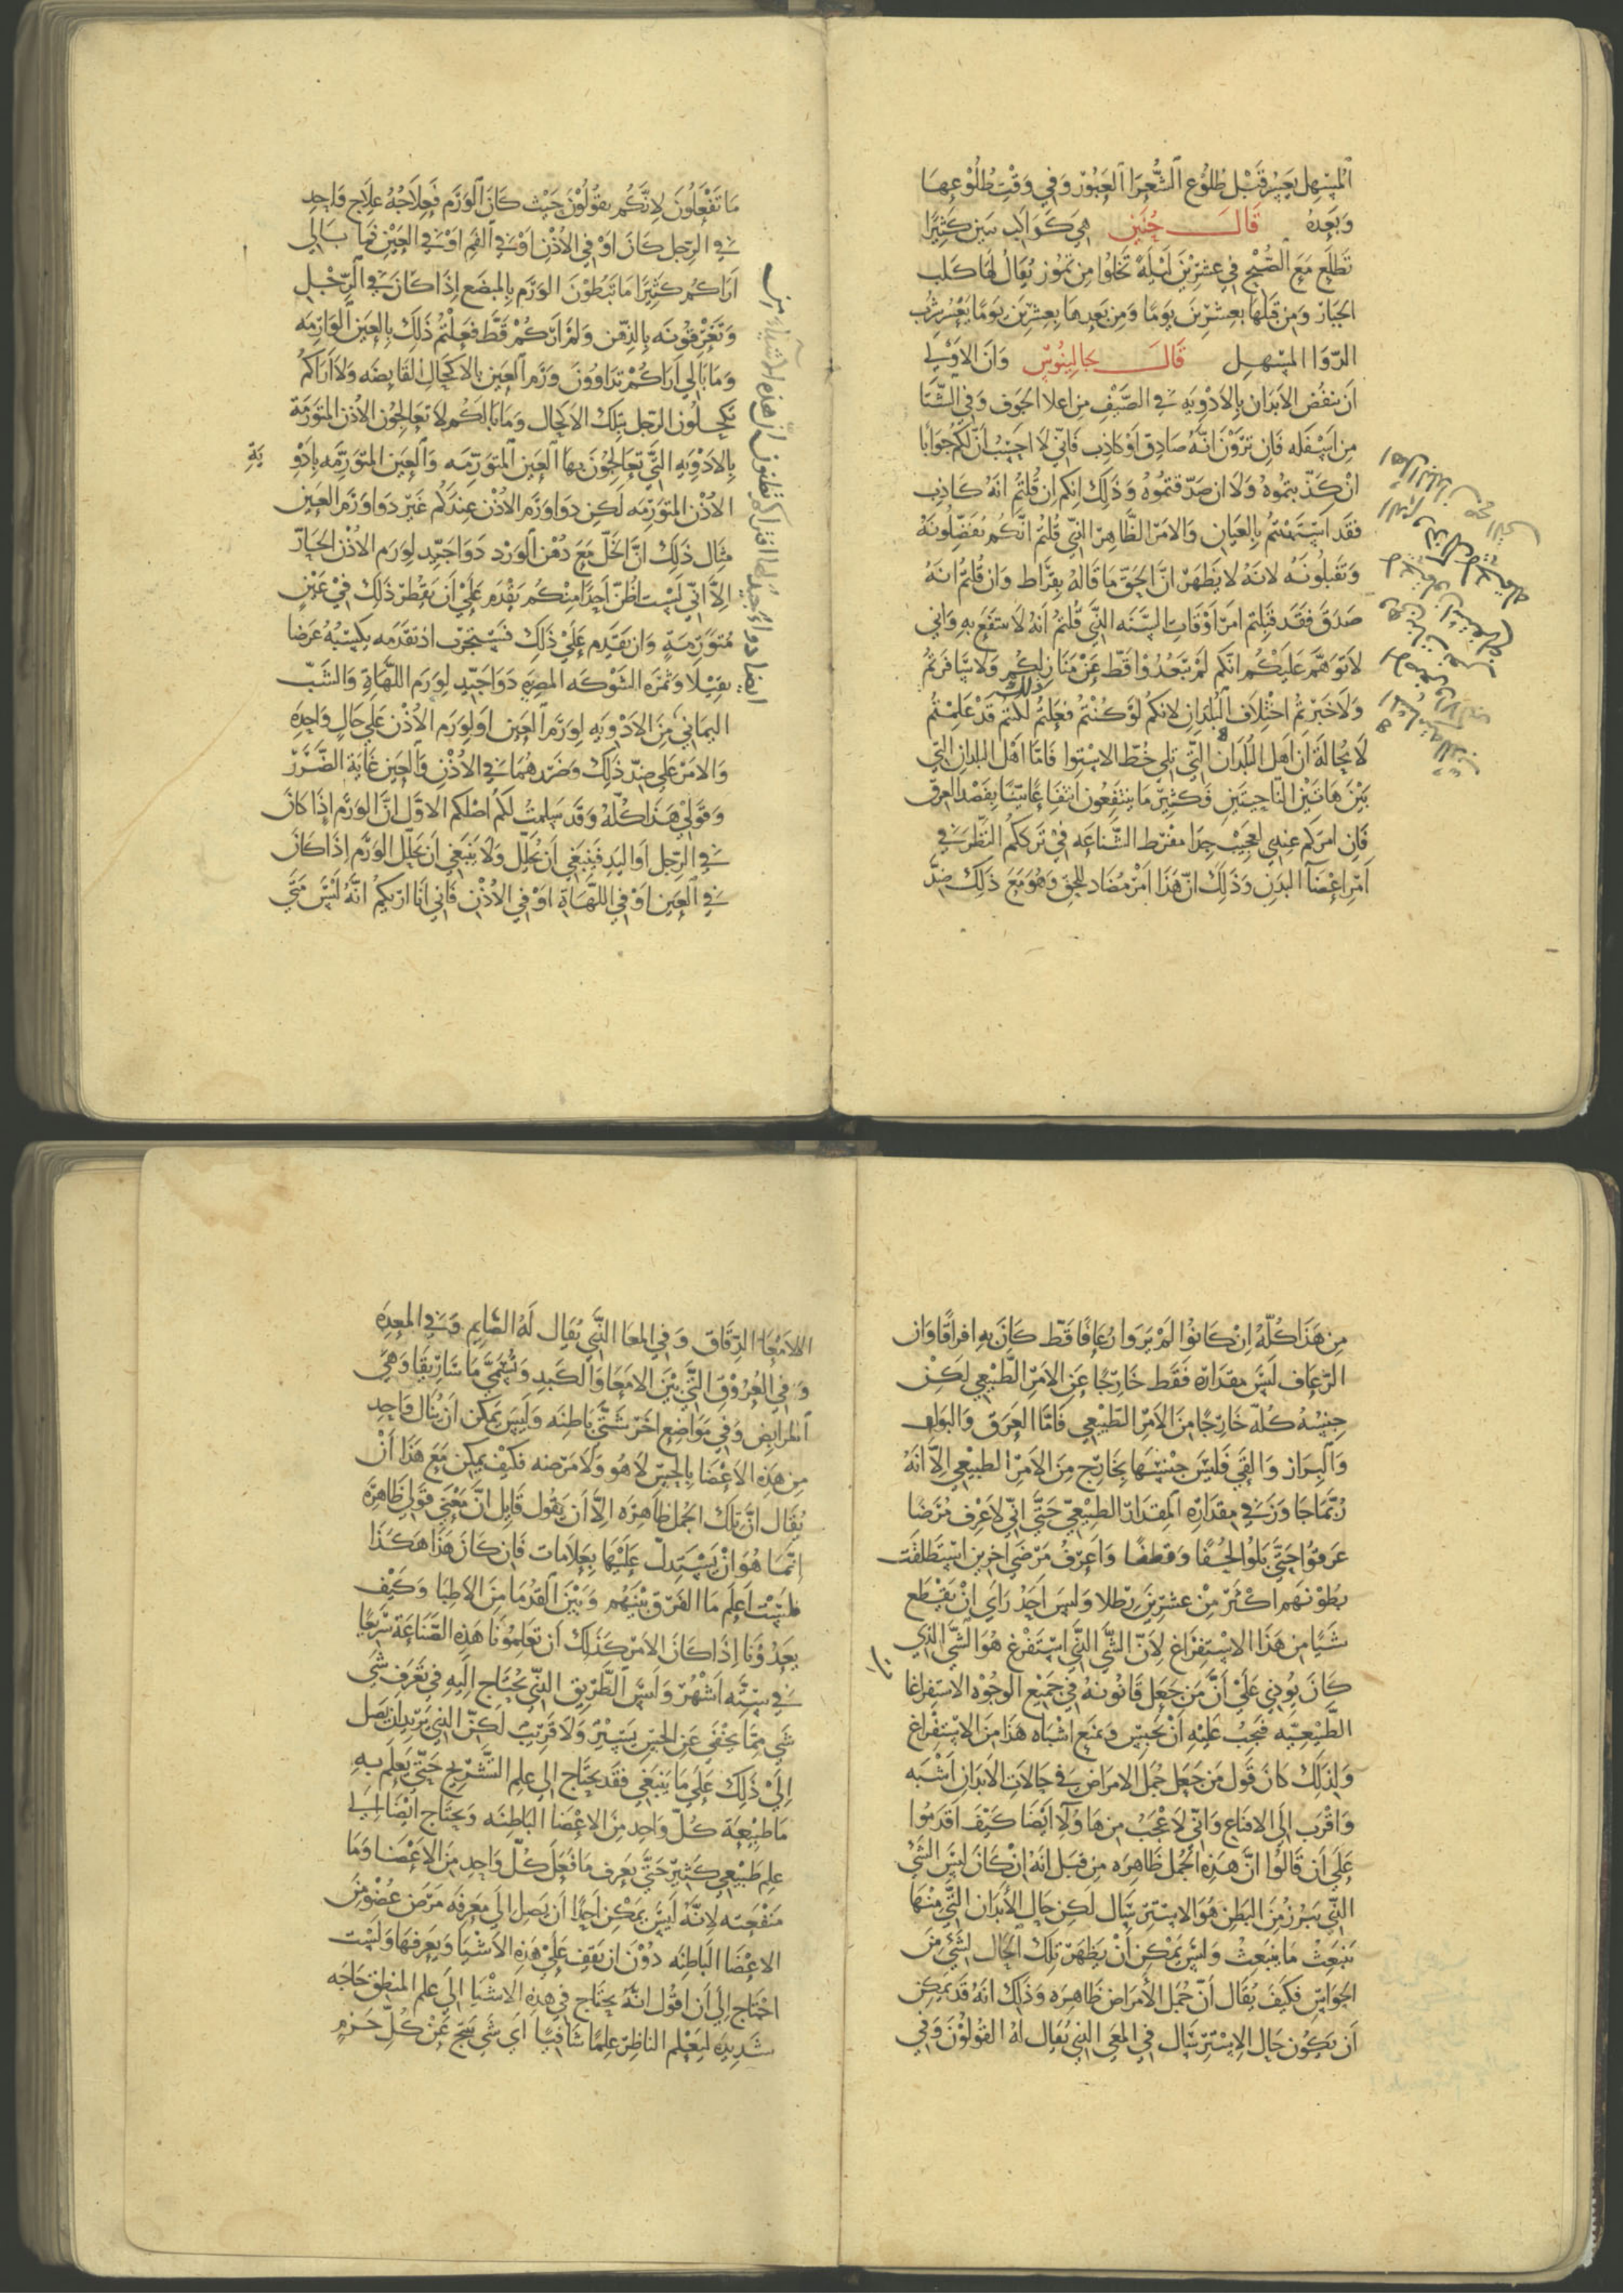 المسهل يعسر قبل طلوع الشعرا العبور وفي وقت طلوعها
وبعده قال حنين هي كواكب تبين كثيرا
تطلع مع الصبح في عشرين ليلة تخلوا من تموز يقال لها كلب
الجبار ومن قبلها بعشرين يوما ومن بعدها بعشرين يوما يعسر شرب
الدوا المسهل قال جالينوس وان الاولي
ان ينفض الابدان بالادويه في الصيف من اعلا الجوف وفي الشتا
من اسفله فان ترون انه صادق او كاذب فاني لا احسب ان لكم جوابا
ان كذبتموه ولا ان صدقتموه وذلك انكم ان قلتم انه كاذب
فقد استهنتم بالعيان والامر الظاهر الذي قلتم انكم تفضلونه
وتقبلونه لانه لا يظهر ان الحق ما قاله بقراط وان قلتم انه
صدق فقد قبلتم امر اوقات السنه الذي قلتم انه لا ينتفع به واني
لاتوهم عليكم انكم لم تبعدوا قط عن منازلكم ولا سافرتم
ولا خبرتم اختلاف البلدان لانكم لو كنتم فعلتم ذلك لكنتم قد علمتم
لا محالة ان اهل البلدان التي تلي خط الاستوا فاما اهل البلدان التي
بين هاتين الناحيتين فكثير ما ينتفعون انتفاعا بينا بفصد العرق
فان امركم عندي لعجيب جدا مفرط الشناعه في ترككم النظر في
امر اعضا البدن وذلك ان هذا امر مضاد للحق وهو مع ذلك ضد
ما تفعلون لانكم تقولون حيث كان الورم فعلاجه علاج واحد
في الرجل كان او في الاذن او في الفم او في العين فما بالي
اراكم كثيرا ما تبطون الورم بالمبضع اذا كان في الرجل
وتغرقونه بالدهن ولم اركم قط فعلتم ذلك بالعين الوارمه
وما بالي اراكم تداوون ورم العين بالاكحال القابضه ولا اراكم
تكحلون الرجل بتلك الاكحال وما بالكم لا تعالجون الاذن المتورمة
بالادويه التي تعالجون بها العين المتورمه والعين المتورمه بادو ية
الاذن المتورمه لكن دوا ورم الاذن عندكم غير دوا ورم العين
مثال ذلك ان الخل مع دهن الورد دوا جيد لورم الاذن الحار
الا اني لست اظن احدا منكم يقدم علي ان يقطر ذلك في عين
متورمة وان تقدم علي ذلك فسيتجرب ان تقدمه يكسبه عرضا
ثقيلا وثمره الشوكه المصريه دوا جيد لورم اللهاة والشب
اليماني من الادويه لورم العين او لورم الاذن علي حال واحده
والامر علي ضد ذلك وضررهما في الاذن والعين غاية الضرر
وقولي هذا كله وقد سلمت لكم اصلكم الاول ان الورم اذا كان
في الرجل او اليد فينبغي ان يحلل ولا ينبغي ان يحلل الورم اذا كان
في العين او في اللهاة او في الاذن فاني انا اريكم انه ليس متي
من هذا كله ان كانوا لم يروا رعافا قط كان به افراقا وان
الرعاف ليس مقداره فقط خارجا عن الامر الطبيعي لكن
جنسه كله خارجا من الامر الطبيعي فاما العرق والبول
والبراز والقي فليس جنسها بخارج من الامر الطبيعي الا انه
ربما جاوز في مقداره المقدار الطبيعي حتي اني لاعرف مرضا
عرقوا حتي بلوا لحفا وقطفا واعرف مرضي اخرين استطلقت
بطونهم اكثر من عشرين رطلا وليس احد راي ان يقطع
شيا من هذا الاستفراغ لان الشي الذي استفرغ هو الشي الذي
كان يوذي علي ان من جعل قانونه في جميع الوجوه الاستفراغا
الطبيعيه فيجب عليه ان يحبس ويمنع اشباه هذا من الاستفراغ
ولذلك كان قول من جعل جمل الامراض في حالات الابدان اشبه
واقرب الي الاقناع واني لاعجب من هاولا ايضا كيف اقدموا
علي ان قالوا ان هذه الجمل ظاهره من قبل انه ان كان ليس الشي
الذي يبرز من البطن هو الاسترسال لكن حال الابدان التي منها
ينبعث ما ينبعث وليس يمكن ان يظهر تلك الحال لشي من
الحواس فكيف يقال ان جمل الامراض ظاهره وذلك انه قد يمكن
ان يكون حال الاسترسال في المعي الذي يقال له القولون وفي
الامعا الدقاق وفي المعا الذي يقال له الصايم وفي المعده
وفي العروق التي بين الامعا والكبد وتسمي ماساريقا وهي
المرابض وفي مواضع اخر شتي باطنه وليس يمكن ان ينال واحد
من هذه الاعضا بالحس لا هو ولا مرضه فكيف يمكن مع هذا ان
يقال ان تلك الجمل ظاهره الا ان يقول قايل ان معني قولي ظاهرة
انما هو ان يستدل عليها بعلامات فان كان هذا هكذا
فلست اعلم ما الفرق بينهم وبين القدما من الاطبا وكيف
يعدوننا اذا كان الامر كذلك ان تعلمونا هذه الصناعة سريعا
في سته اشهر وليس الطريق الذي يحتاج اليه في تعرف شي
شي مما يخفي عن الحس بيسير ولا قريب لكن الذي يريد ان يصل
الي ذلك علي ما ينبغي فقد يحتاج الي علم التشريح حتي يعلم به
ما طبيعة كل واحد من الاعضا الباطنه ويحتاج ايضا الي
علم طبيعي كثير حتي يعرف ما فعل كل واحد من الاعضا وما
منفعته لانه ليس يمكن احدا ان يصل الي معرفه مرض عضو من
الاعضا الباطنه دون ان يقف علي هذه الاشيا ويعرفها ولست
احتاج الي ان اقول انه يحتاج في هذه الاشيا الي علم المنطق حاجه
شديده ليعلم الناظر علما شافيا اي شي ينتج عن كل حزم